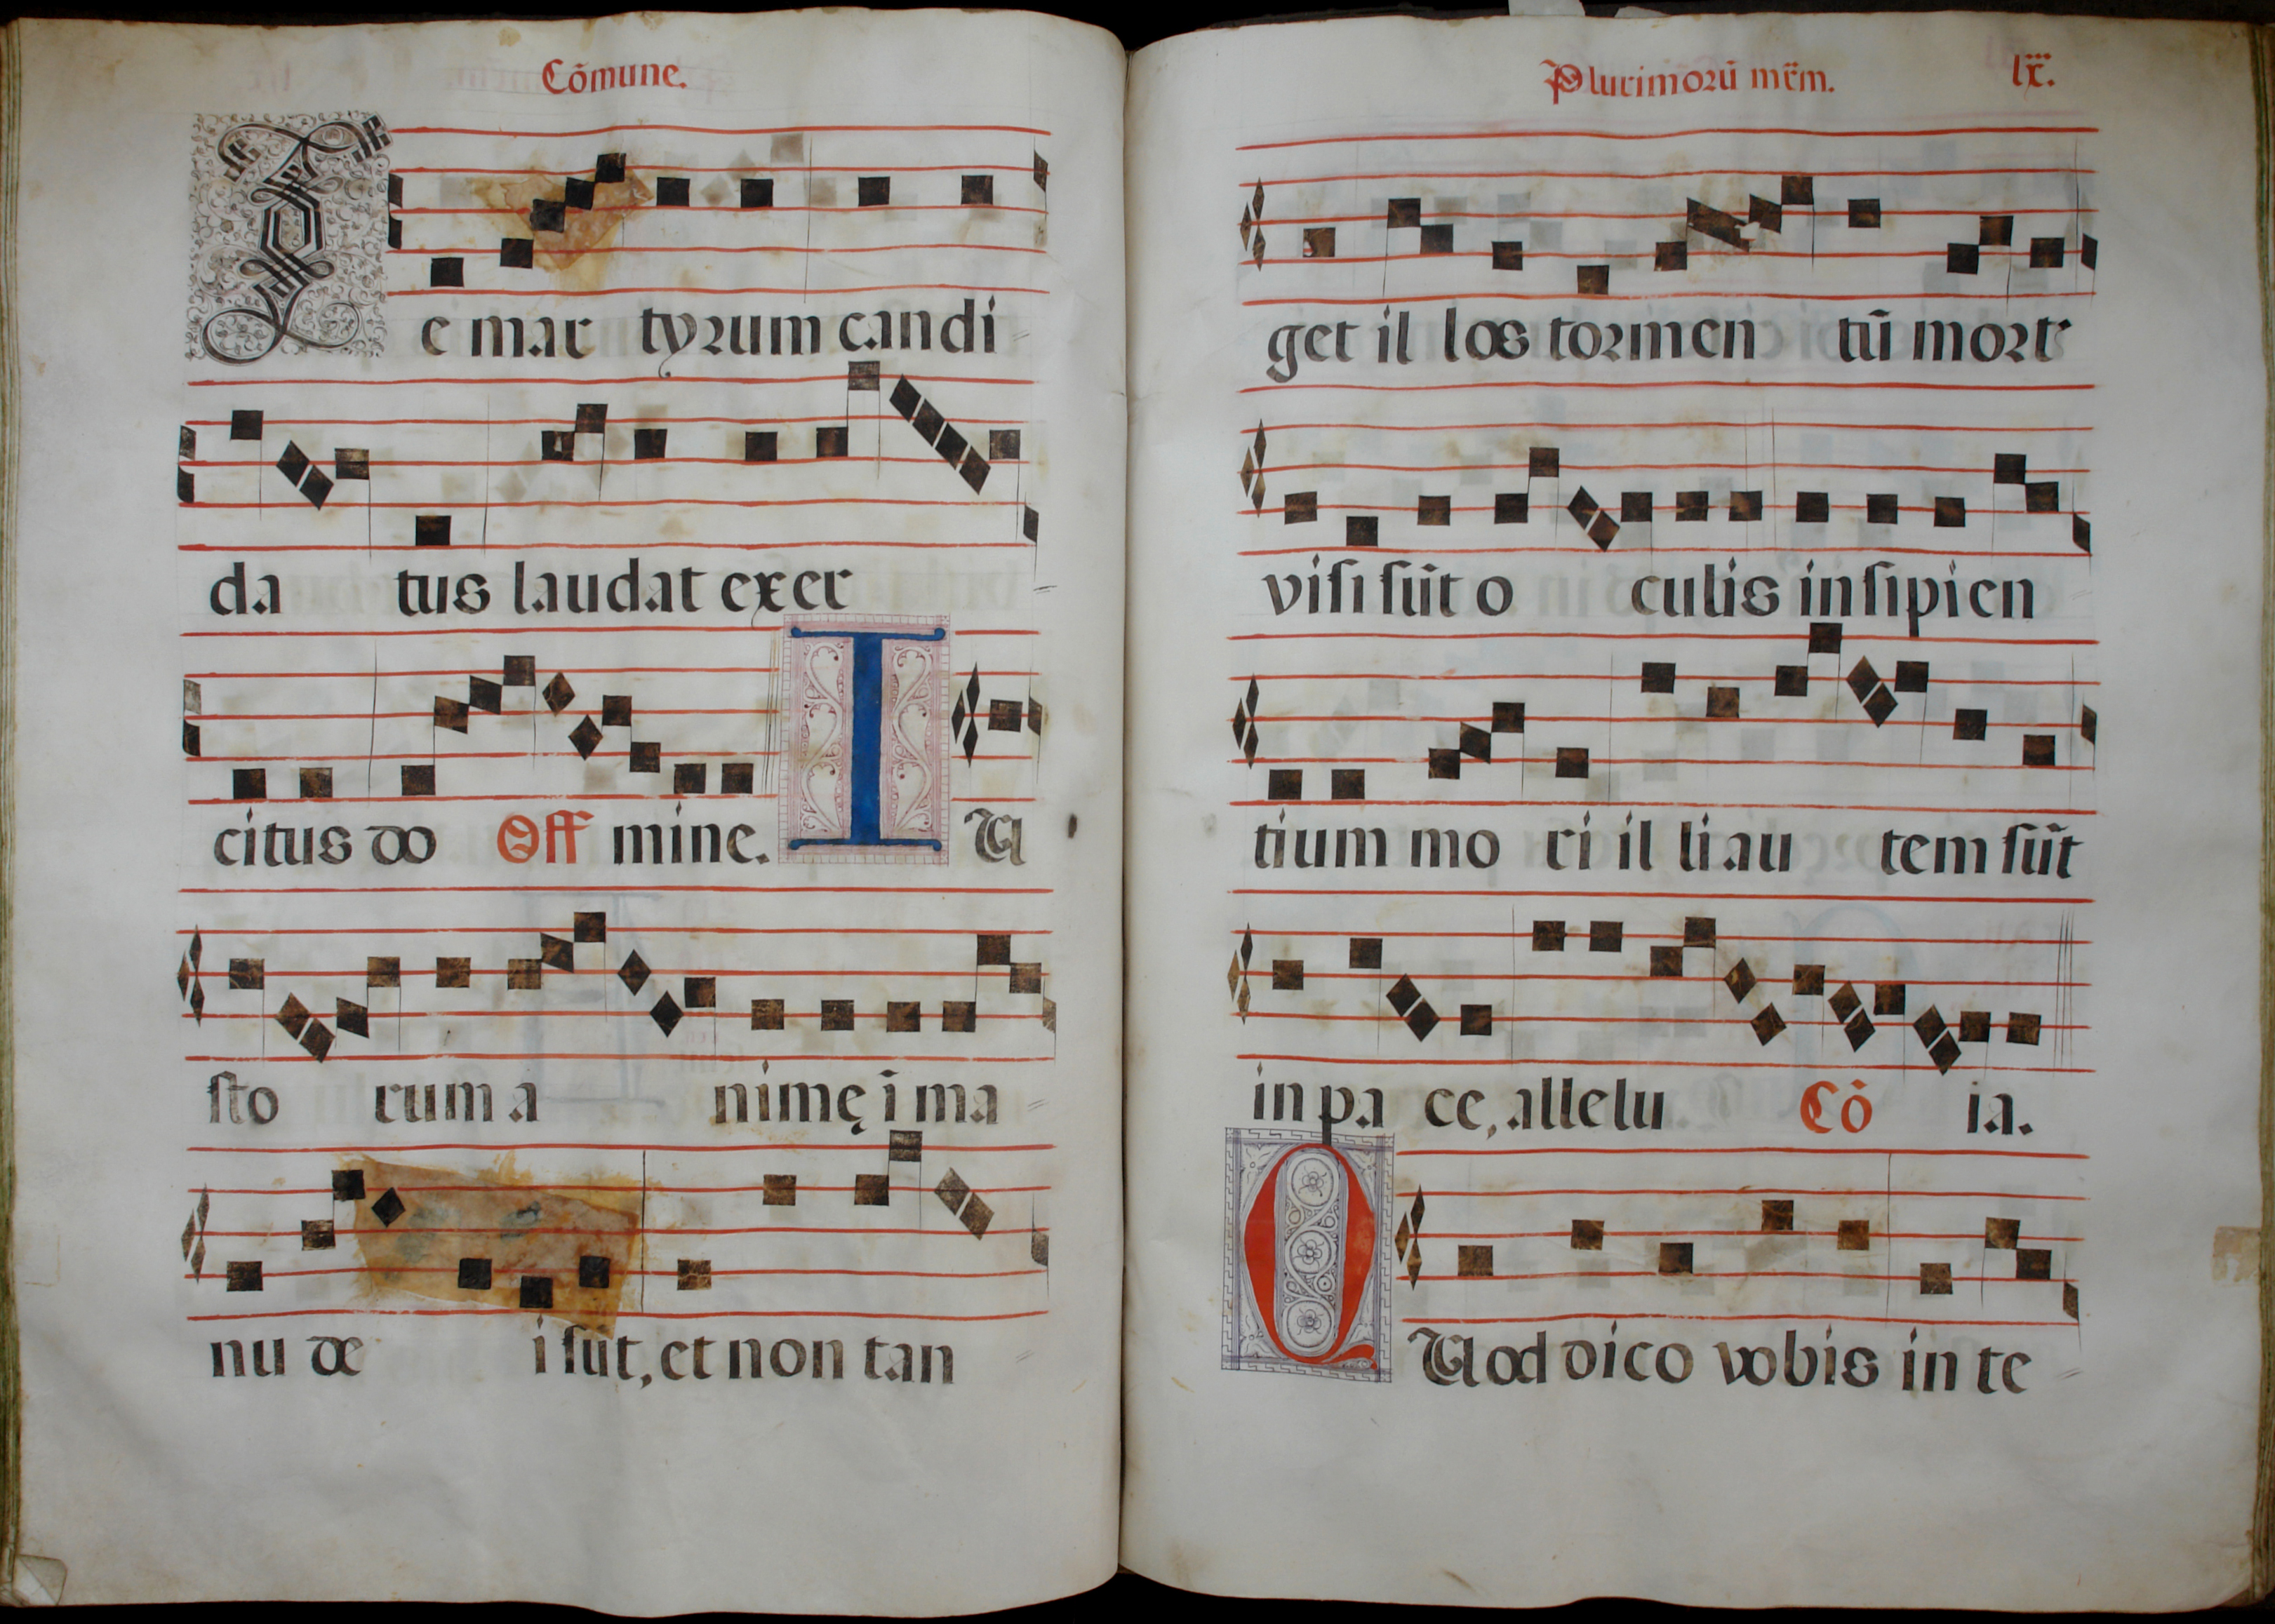 Cõmune.
Te mar tyrum candi
da tus laudat exer
citus do Off mine. I U
sto rum a nimę ĩ ma
nu de i sũt, et non tan
Plurimorũ mr̃m. lx.
get il los tormen tũ mort
visi sũt o culis insipien
tium mo ri il li au tem sũt
in pa ce, allelu Cõ ia.
QUod dico vobis in te